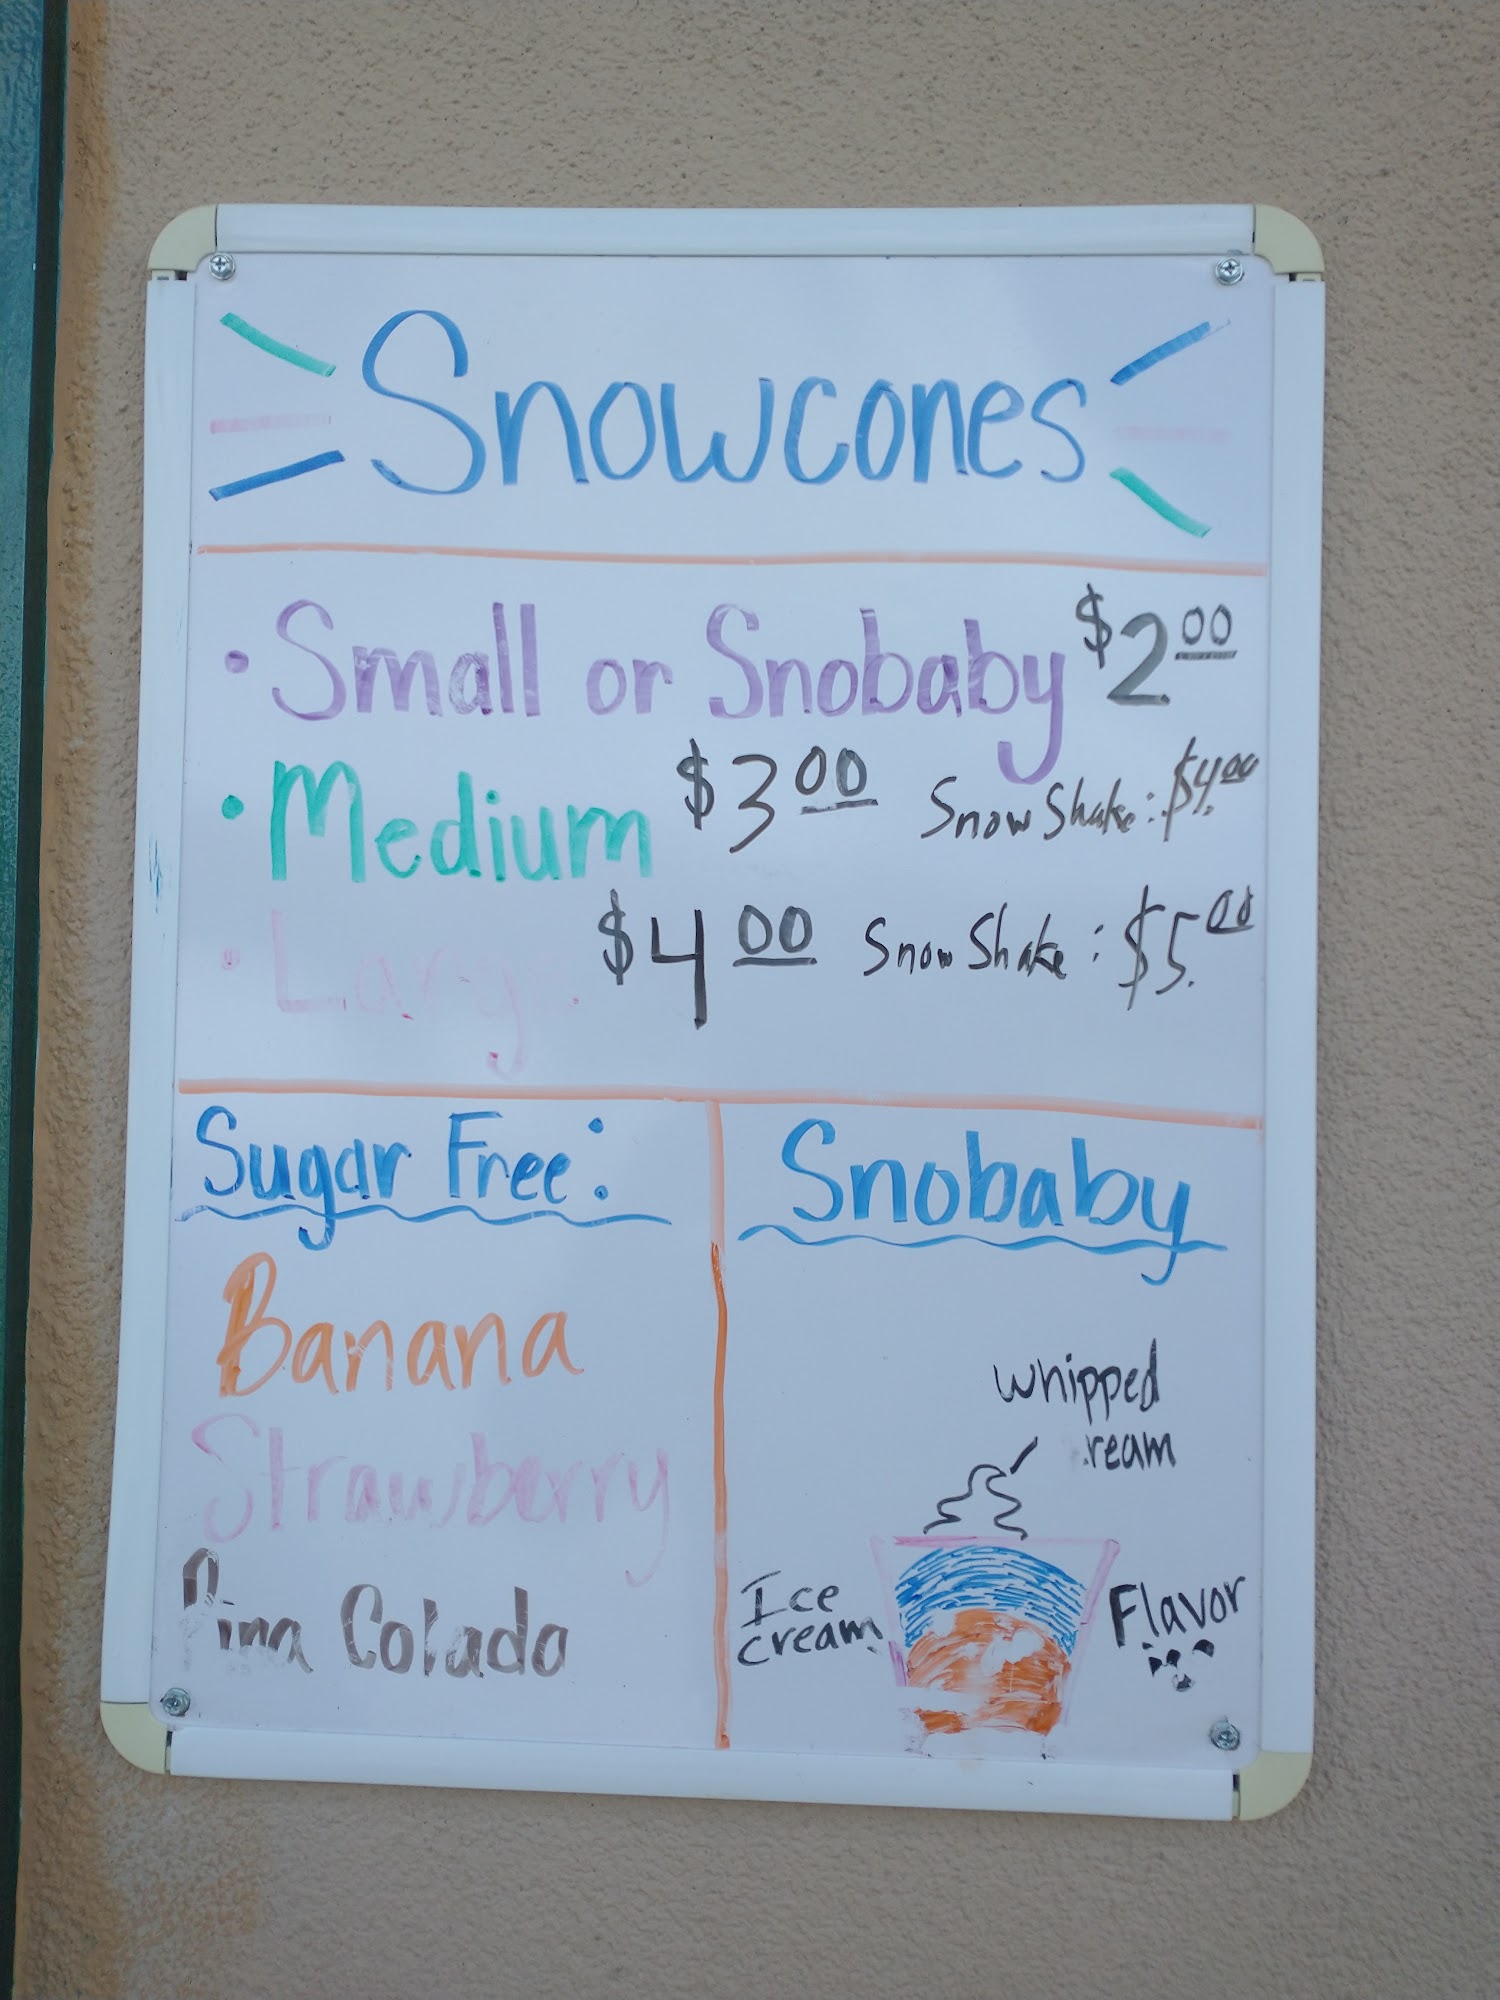 Snowcones
• Small or Snobaby $2.00
• Medium $3.00 Snow Shake: $4.00
• Larg $4.00 Snow Shake: $5.00
Sugar Free:
Banana
Strawberry
Pina Colada
Snobaby
whipped
ream
Ice
cream
Flavor